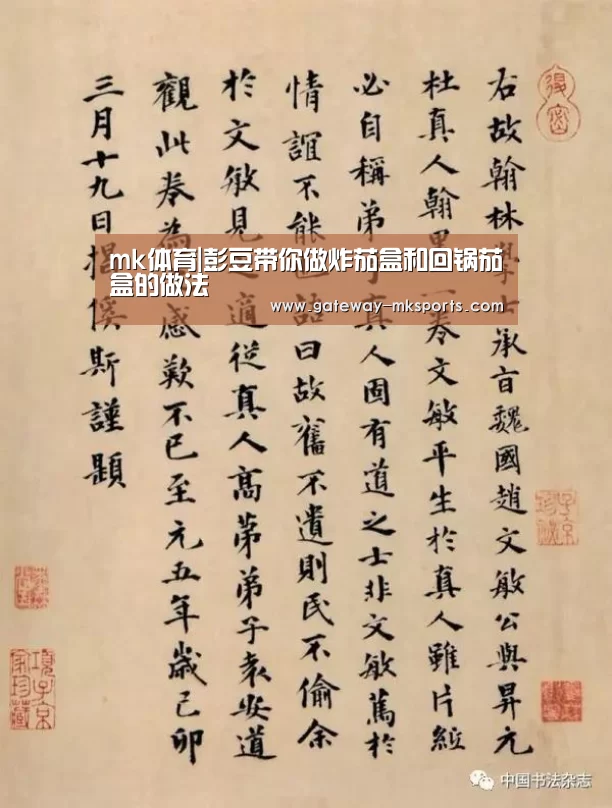 右故翰林學士承旨魏國趙文敏公與昇元
杜真人翰墨一卷文敏平生於真人雖片紙
必自稱弟子真人固有道之士非文敏篤於
情誼不能也語曰故舊不遺則民不偷余
於文敏見適從真人高第弟子袁道
觀此卷為感歎不已至元五年歲己卯
三月十九日揭傒斯謹題
mk体育|彭豆带你做炸茄盒和回锅茄
盒的做法
www.gateway-mksports.com
項子京家珍藏
中国书法杂志